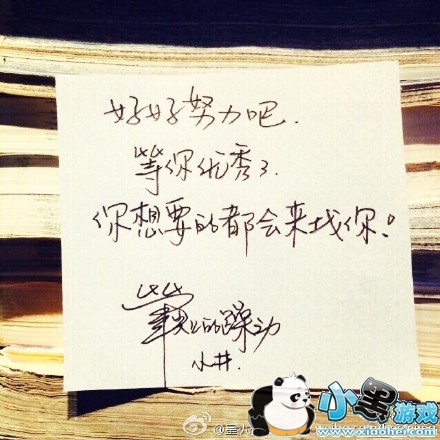 好好努力吧.
等你优秀了.
你想要的都会来找你!
的躁动
小井.
小黑游戏
www.xiaohei.com